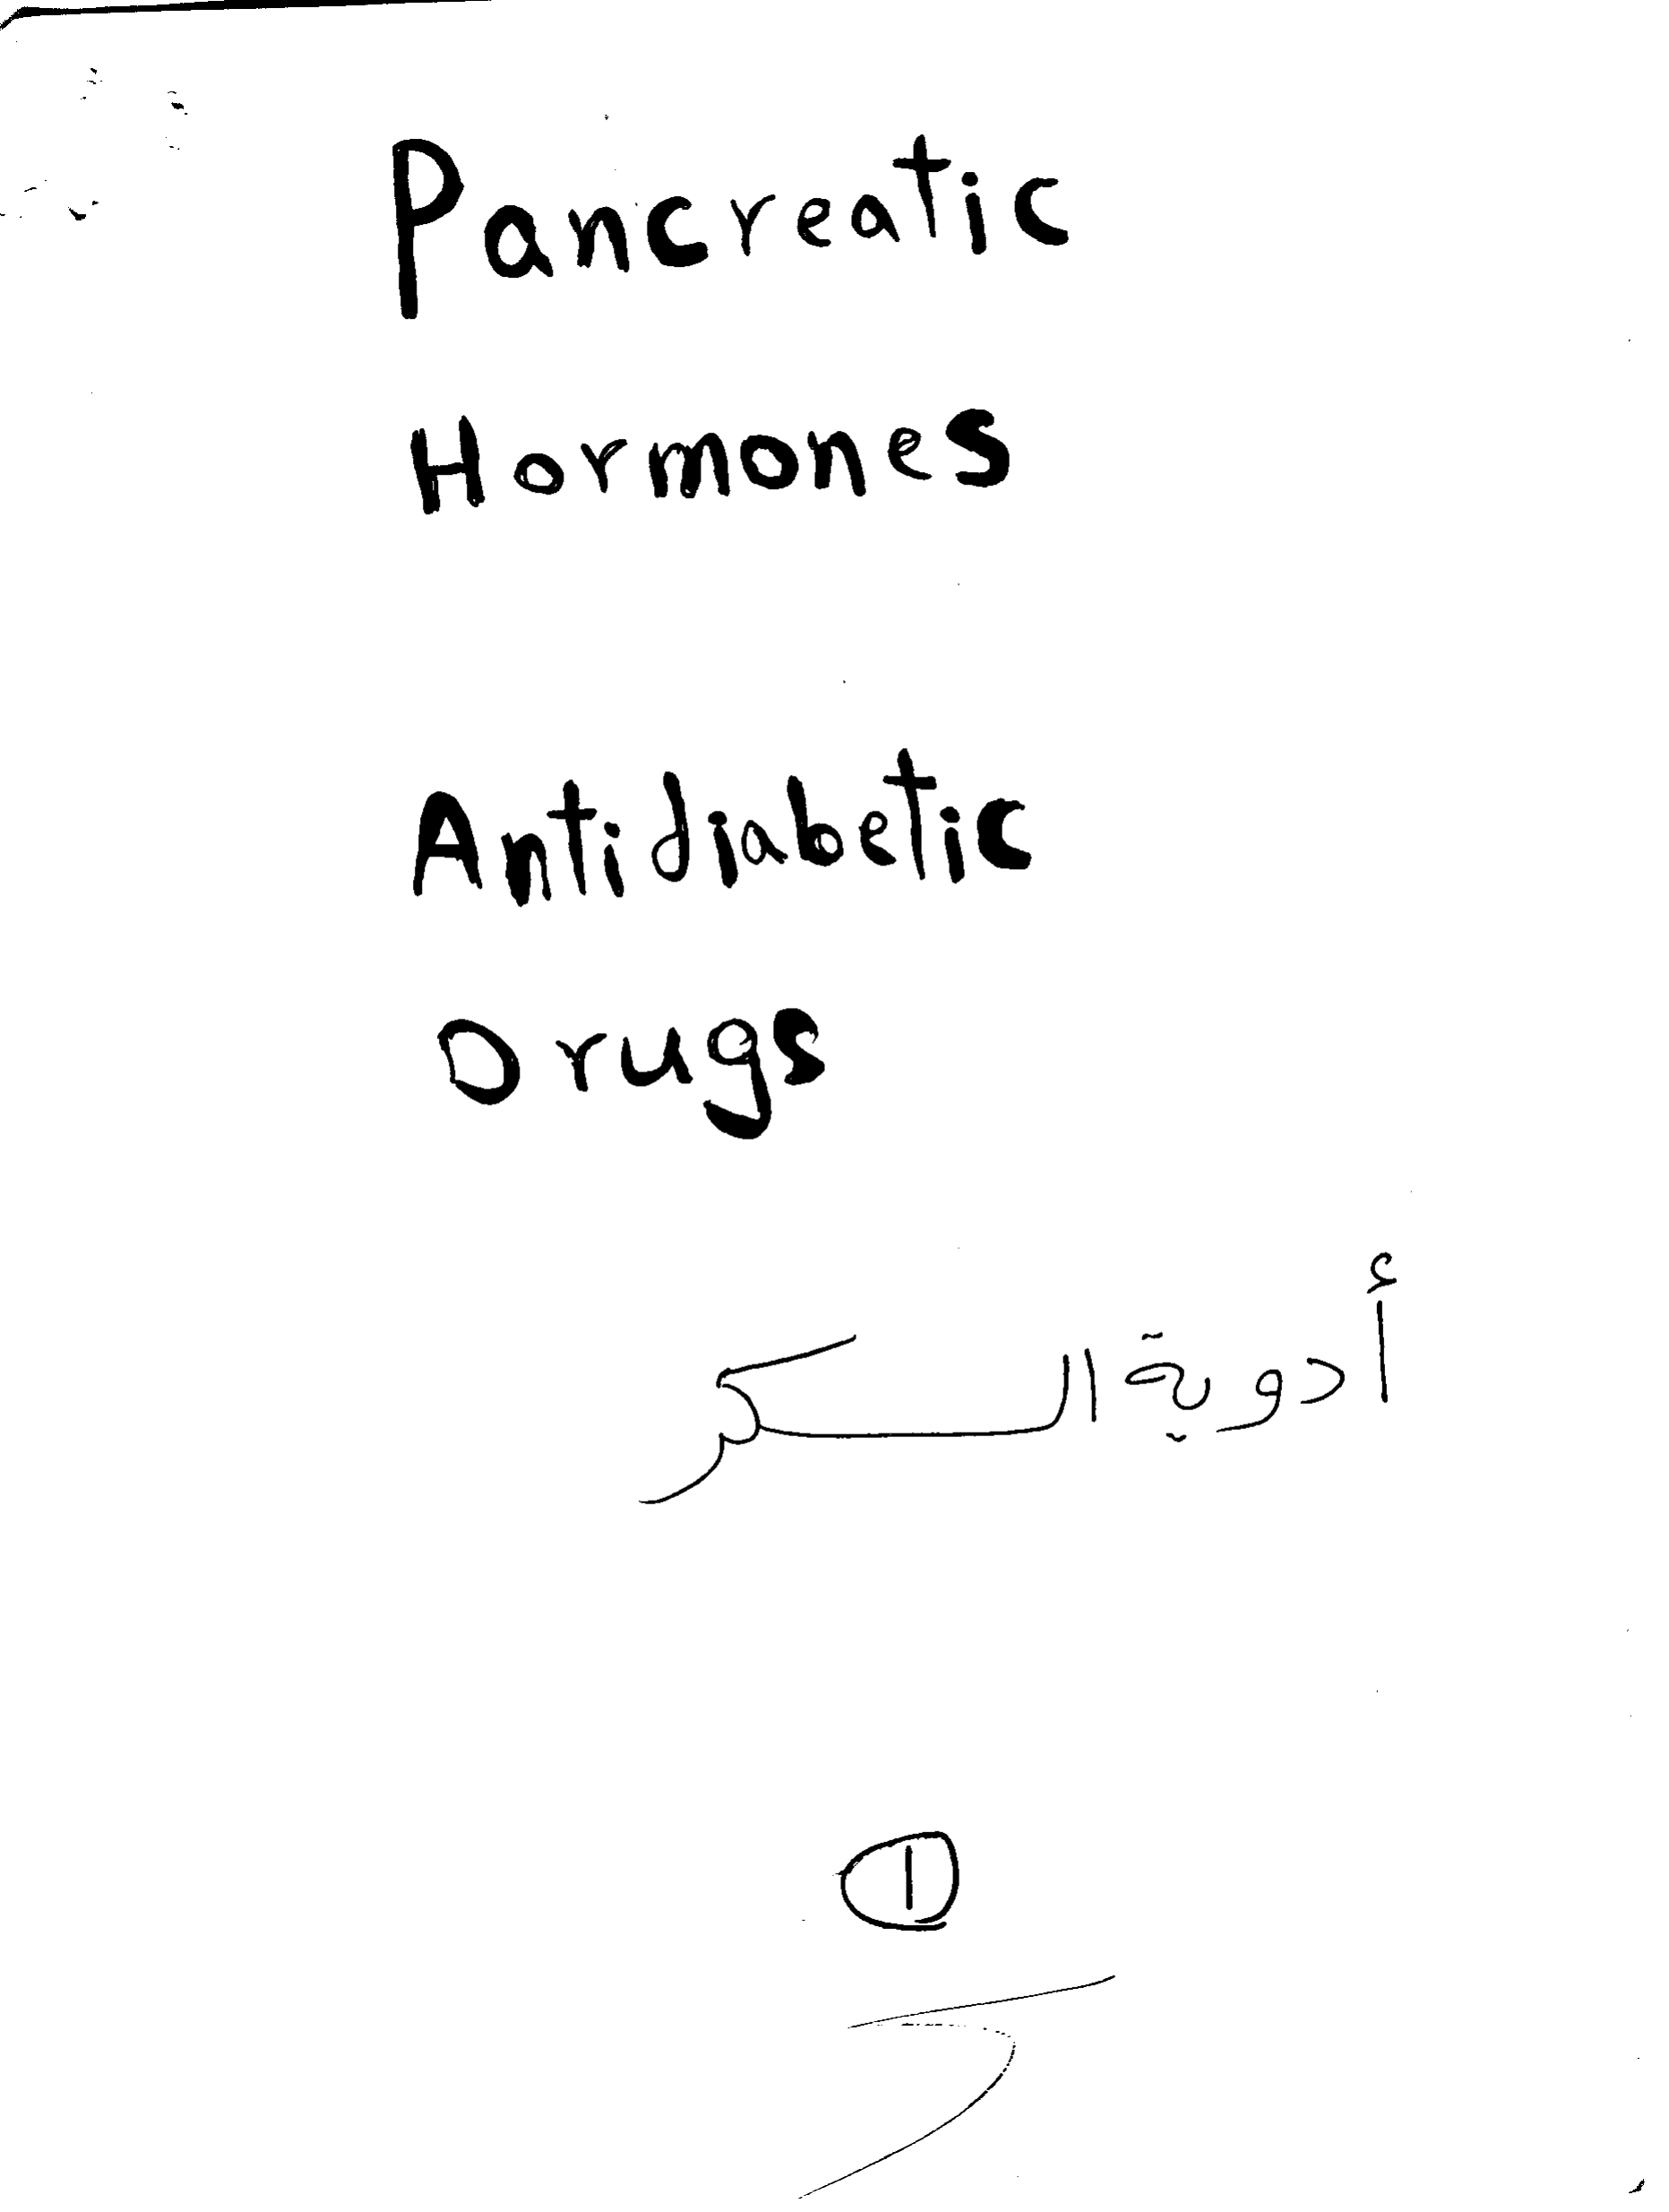 Pancreatic
Hormones
Antidiabetic
Drugs
أدوية السكر
1